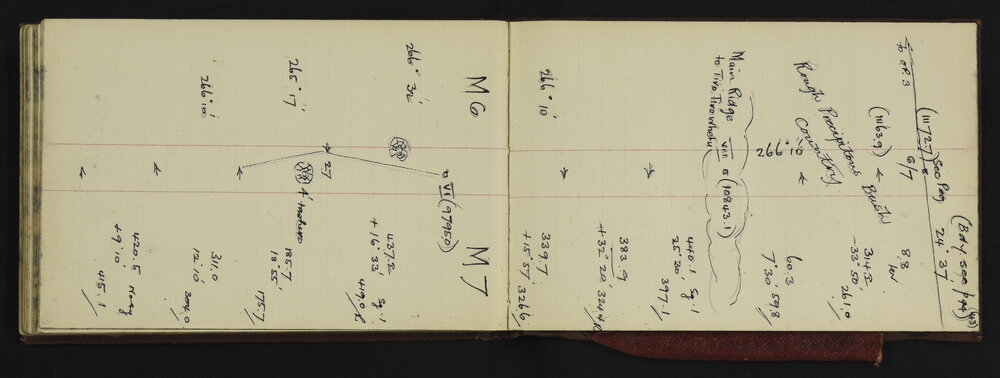 (Bdy see page 43)
24° 37'
(11172.7) See Peg
To OR 3
6/7
8.8
(11163.9) ← Bush
314.2
-33° 50' 261.0
Rough Precipitous
Country
266° 10'
60.3
7° 30' 59.8
Main Ridge VIII (10843.1)
to Tira Tirawhetu
440.1 Sg .1
25° 30' 397.1
383.9
+32° 20' 324.4
266° 10'
339.7
+15° 57' 326.6
M 6 M 7
VI (9795.0)
266° 32'
437.2 Sg .1
+16° 33' 419.0
27
265° 17'
185.7
18° 55' 175.7
266° 10'
311.0
12° 10' 304.0
420.5
+9° 10' 415.1